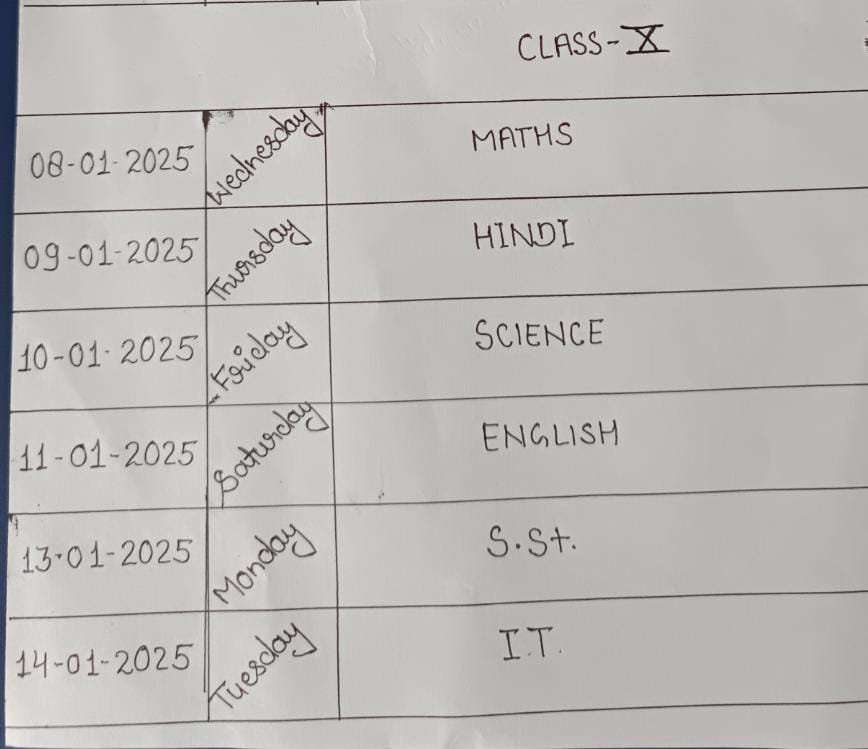 CLASS-X
08-01-2025 Wednesday MATHS
09-01-2025 Thursday HINDI
10-01-2025 Friday SCIENCE
11-01-2025 Saturday ENGLISH
13-01-2025 Monday S.St.
14-01-2025 Tuesday I.T.